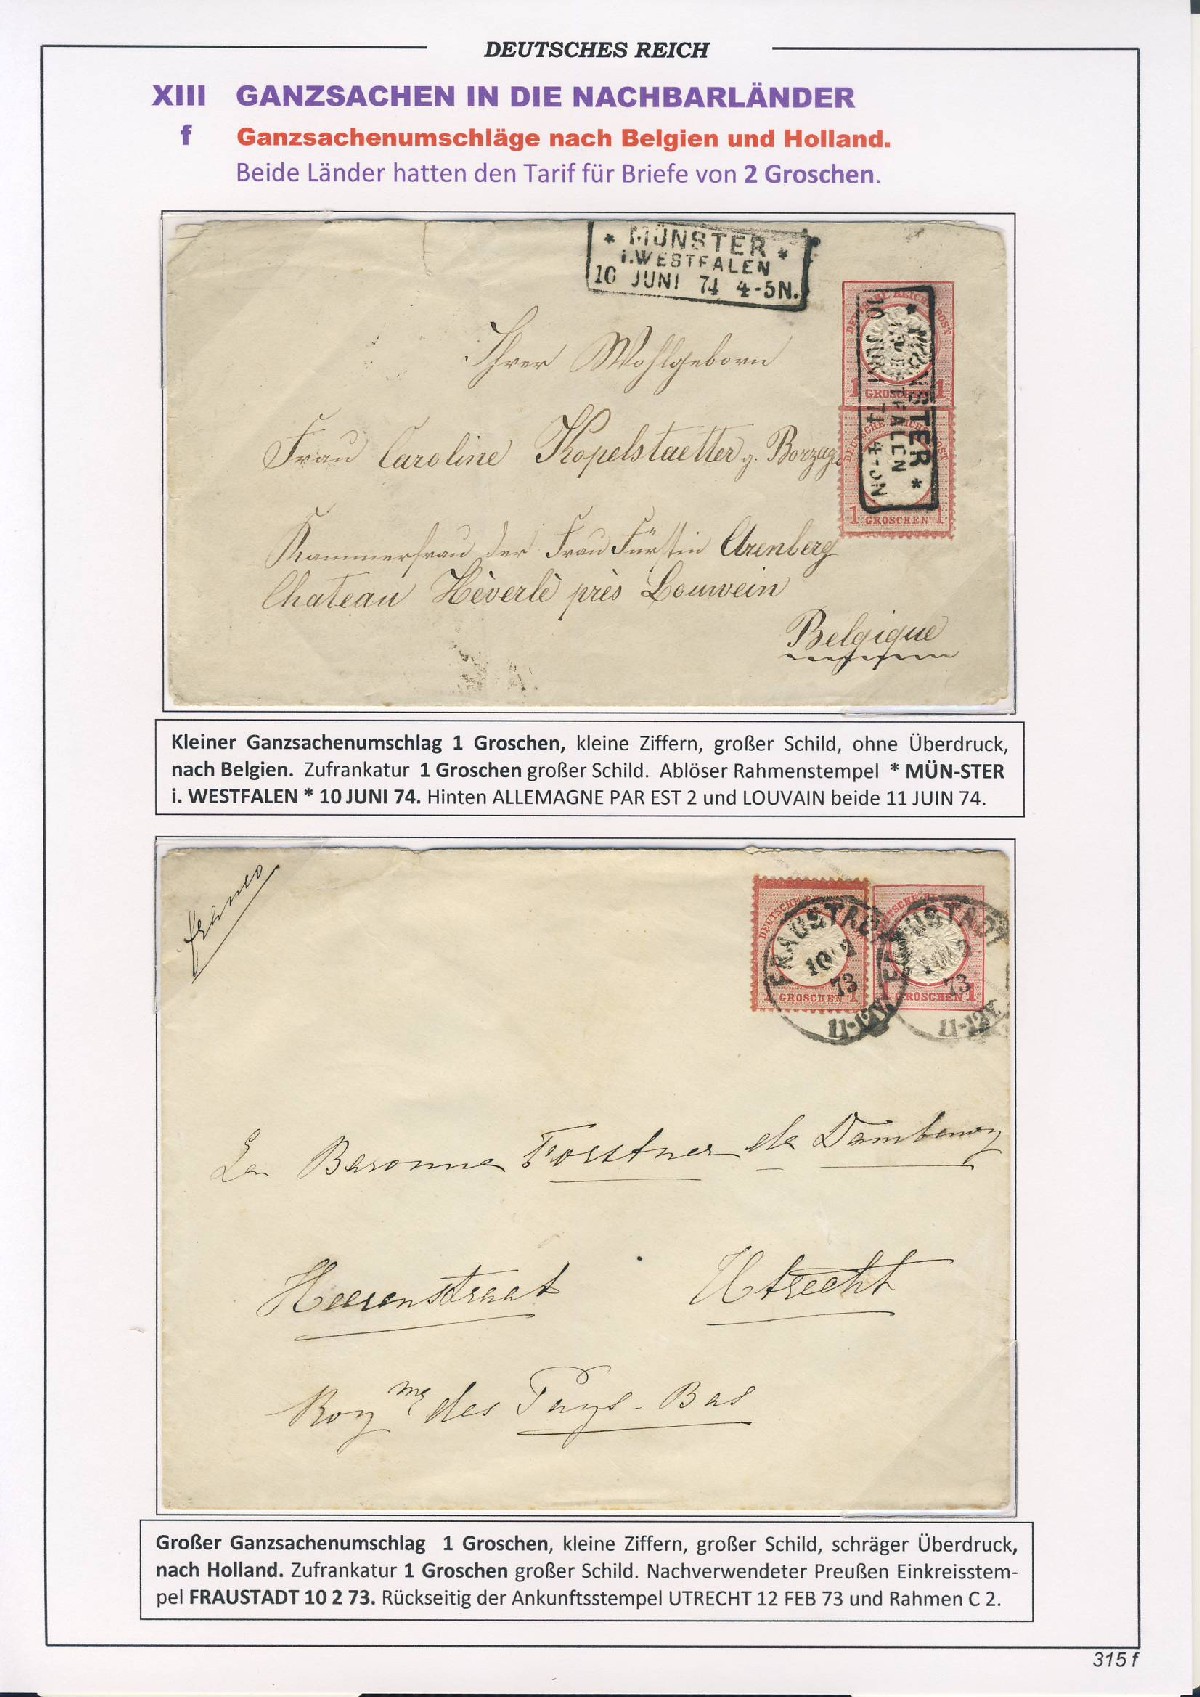 DEUTSCHES REICH
XIII GANZSACHEN IN DIE NACHBARLÄNDER
f Ganzsachenumschläge nach Belgien und Holland.
Beide Länder hatten den Tarif für Briefe von 2 Groschen.
* MÜNSTER *
i. WESTFALEN
10 JUNI 74 4-5N.
1 GROSCHEN 1
* MÜNSTER *
i. WESTFALEN
10 JUNI 74 4-5N
1 GROSCHEN 1
Ihrer Wohlgeborn
Frau Caroline Kopelstaetter g.
Kammerfrau der Frau Fürstin Arenberg
Chateau Hèverlè près Louwein
Belgique
Kleiner Ganzsachenumschlag 1 Groschen, kleine Ziffern, großer Schild, ohne Überdruck,
nach Belgien. Zufrankatur 1 Groschen großer Schild. Ablöser Rahmenstempel * MÜN-STER
i. WESTFALEN * 10 JUNI 74. Hinten ALLEMAGNE PAR EST 2 und LOUVAIN beide 11 JUIN 74.
franco
FRAUSTADT
10 2
73
1 GROSCHEN 1
FRAUSTADT
73
GROSCHEN 1
La Baronne Forstner de Dambenoy
Heerenstraat Utrecht
Roy me des Pays-Bas
Großer Ganzsachenumschlag 1 Groschen, kleine Ziffern, großer Schild, schräger Überdruck,
nach Holland. Zufrankatur 1 Groschen großer Schild. Nachverwendeter Preußen Einkreisstem-
pel FRAUSTADT 10 2 73. Rückseitig der Ankunftsstempel UTRECHT 12 FEB 73 und Rahmen C 2.
315 f